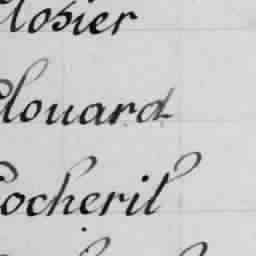 Closier
Édouard
Cocheril